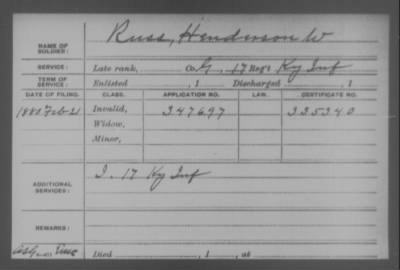 Russ, Henderson W
NAME OF SOLDIER:
SERVICE: Late rank, Co. G, 17 Reg't Ky Inf
TERM OF SERVICE: Enlisted , 1 Discharged , 1
DATE OF FILING. CLASS. APPLICATION NO. LAW. CERTIFICATE NO.
1880 Feb 21 Invalid, 347697 335340
Widow,
Minor,
ADDITIONAL SERVICES: I. 17 Ky Inf
REMARKS:
Died , 1 , at